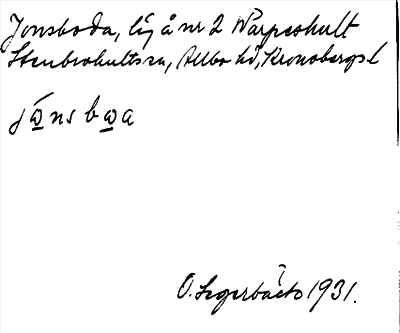 Jonsboda, lg å nr 2 Warpeshult
Stenbrohults sn, Allbo hd, Kronobergs l
jo̲nsbo̲a
O. Segerbäck 1931.